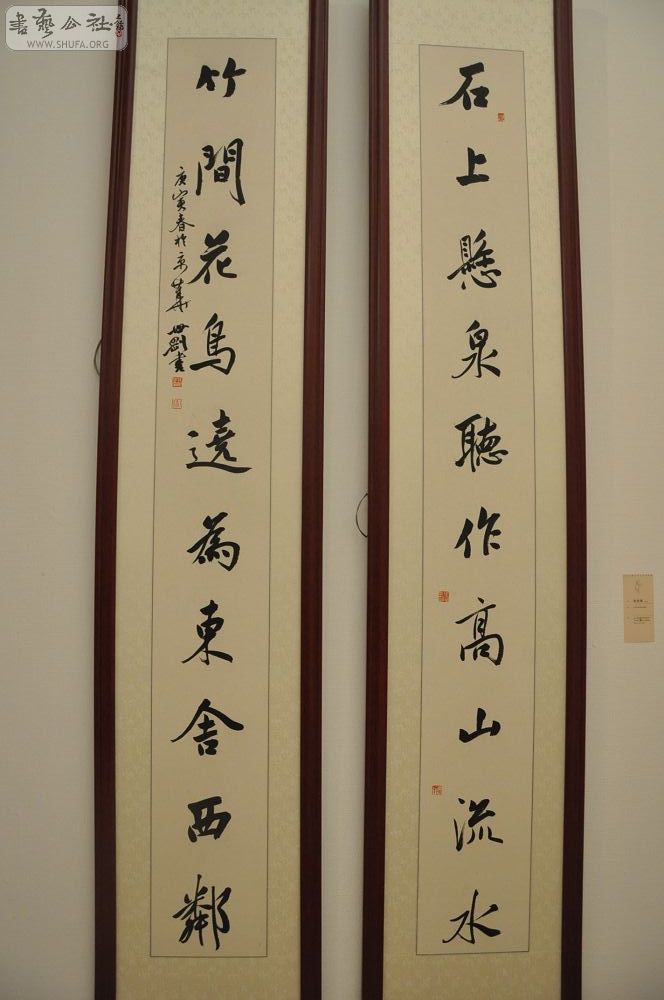 石上懸泉聽作高山流水
竹間花鳥遶為東舍西鄰
庚寅春於京華世剛書
書藝公社
WWW.SHUFA.ORG